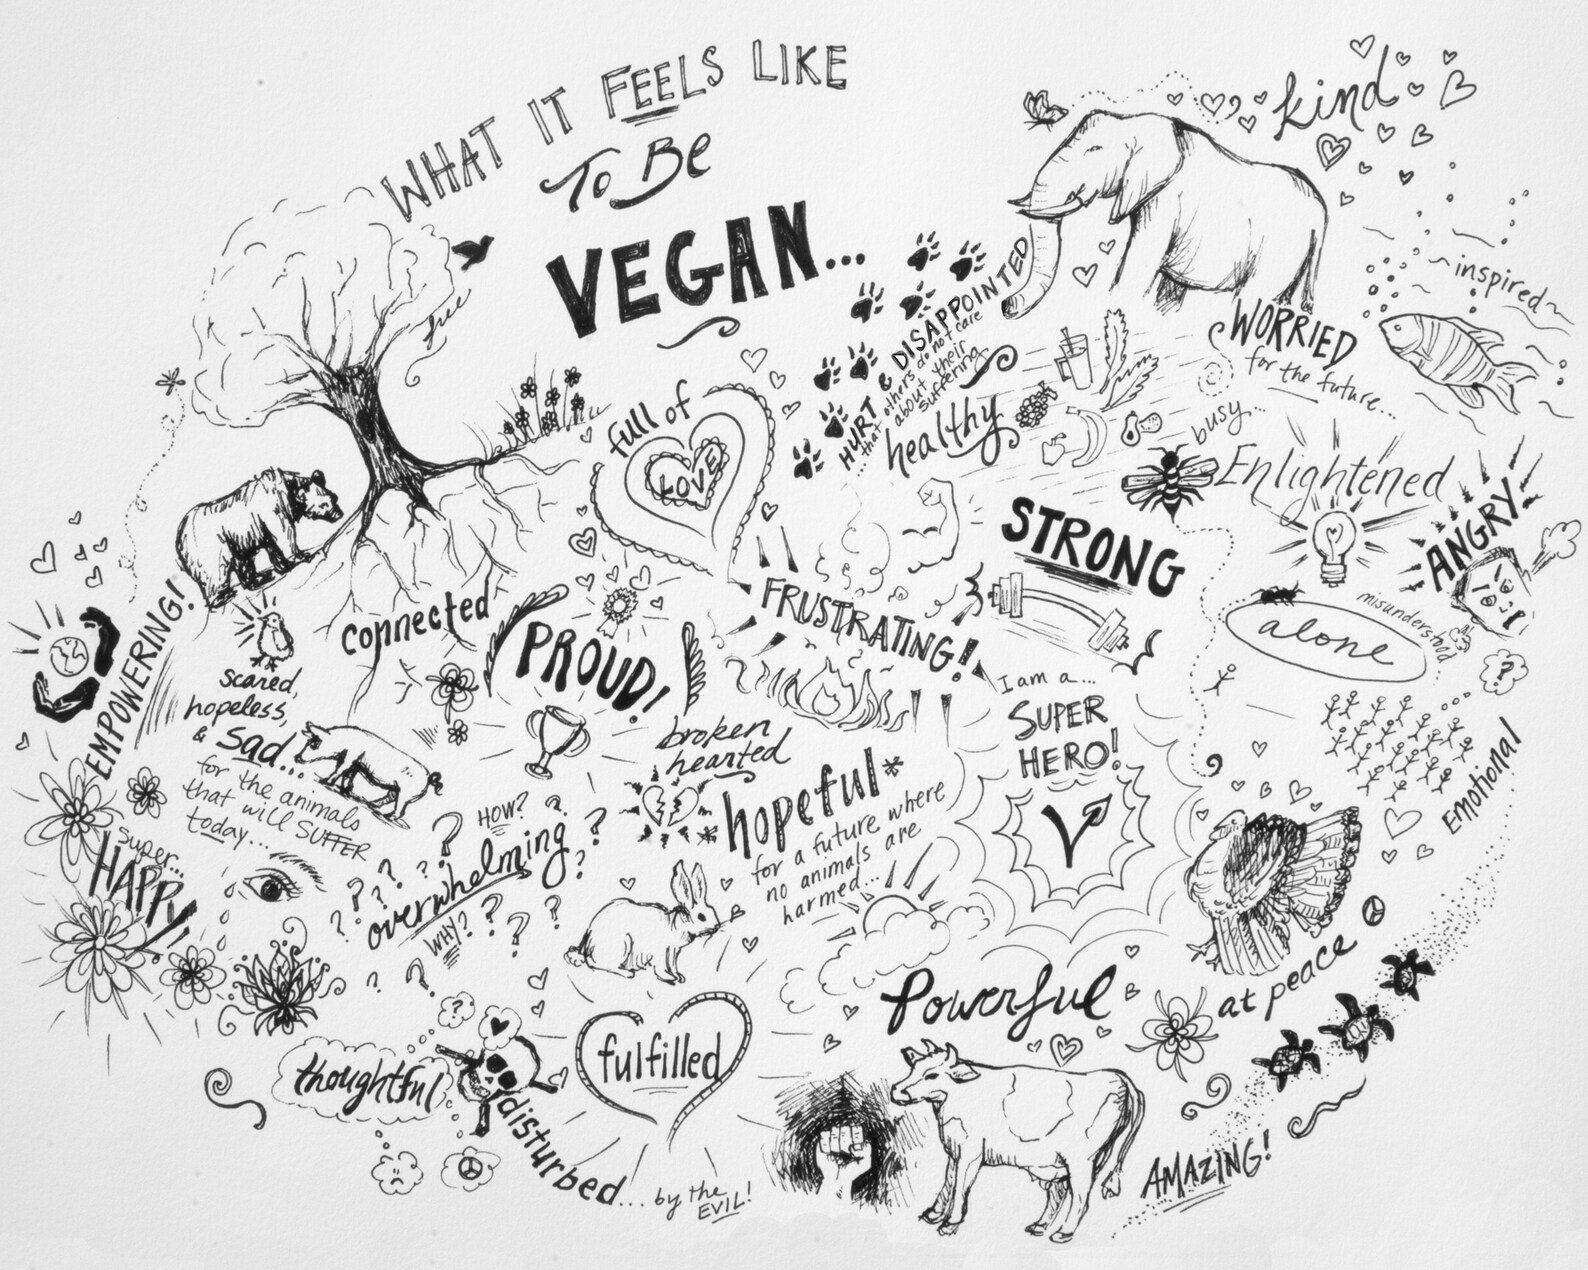 WHAT IT FEELS LIKE
To Be
VEGAN...
kind
free
inspired
HURT & DISAPPOINTED
...that others do not care
about their
suffering
WORRIED
for the future...
full of
LOVE
healthy
busy...
Enlightened
ANGRY
STRONG
EMPOWERING!
connected
FRUSTRATING!
misunderstood
alone
scared,
hopeless,
& sad...
for the animals
that will SUFFER
today...
PROUD!
I am a...
SUPER
HERO!
V
broken
hearted
?
EMOTIONAL
super...
HAPPY!
HOW?
overwhelming
WHY?
hopeful*
*for a future where
no animals are
harmed...
Powerful
at peace
thoughtful
?
fulfilled
disturbed... by the
EVIL!
AMAZING!